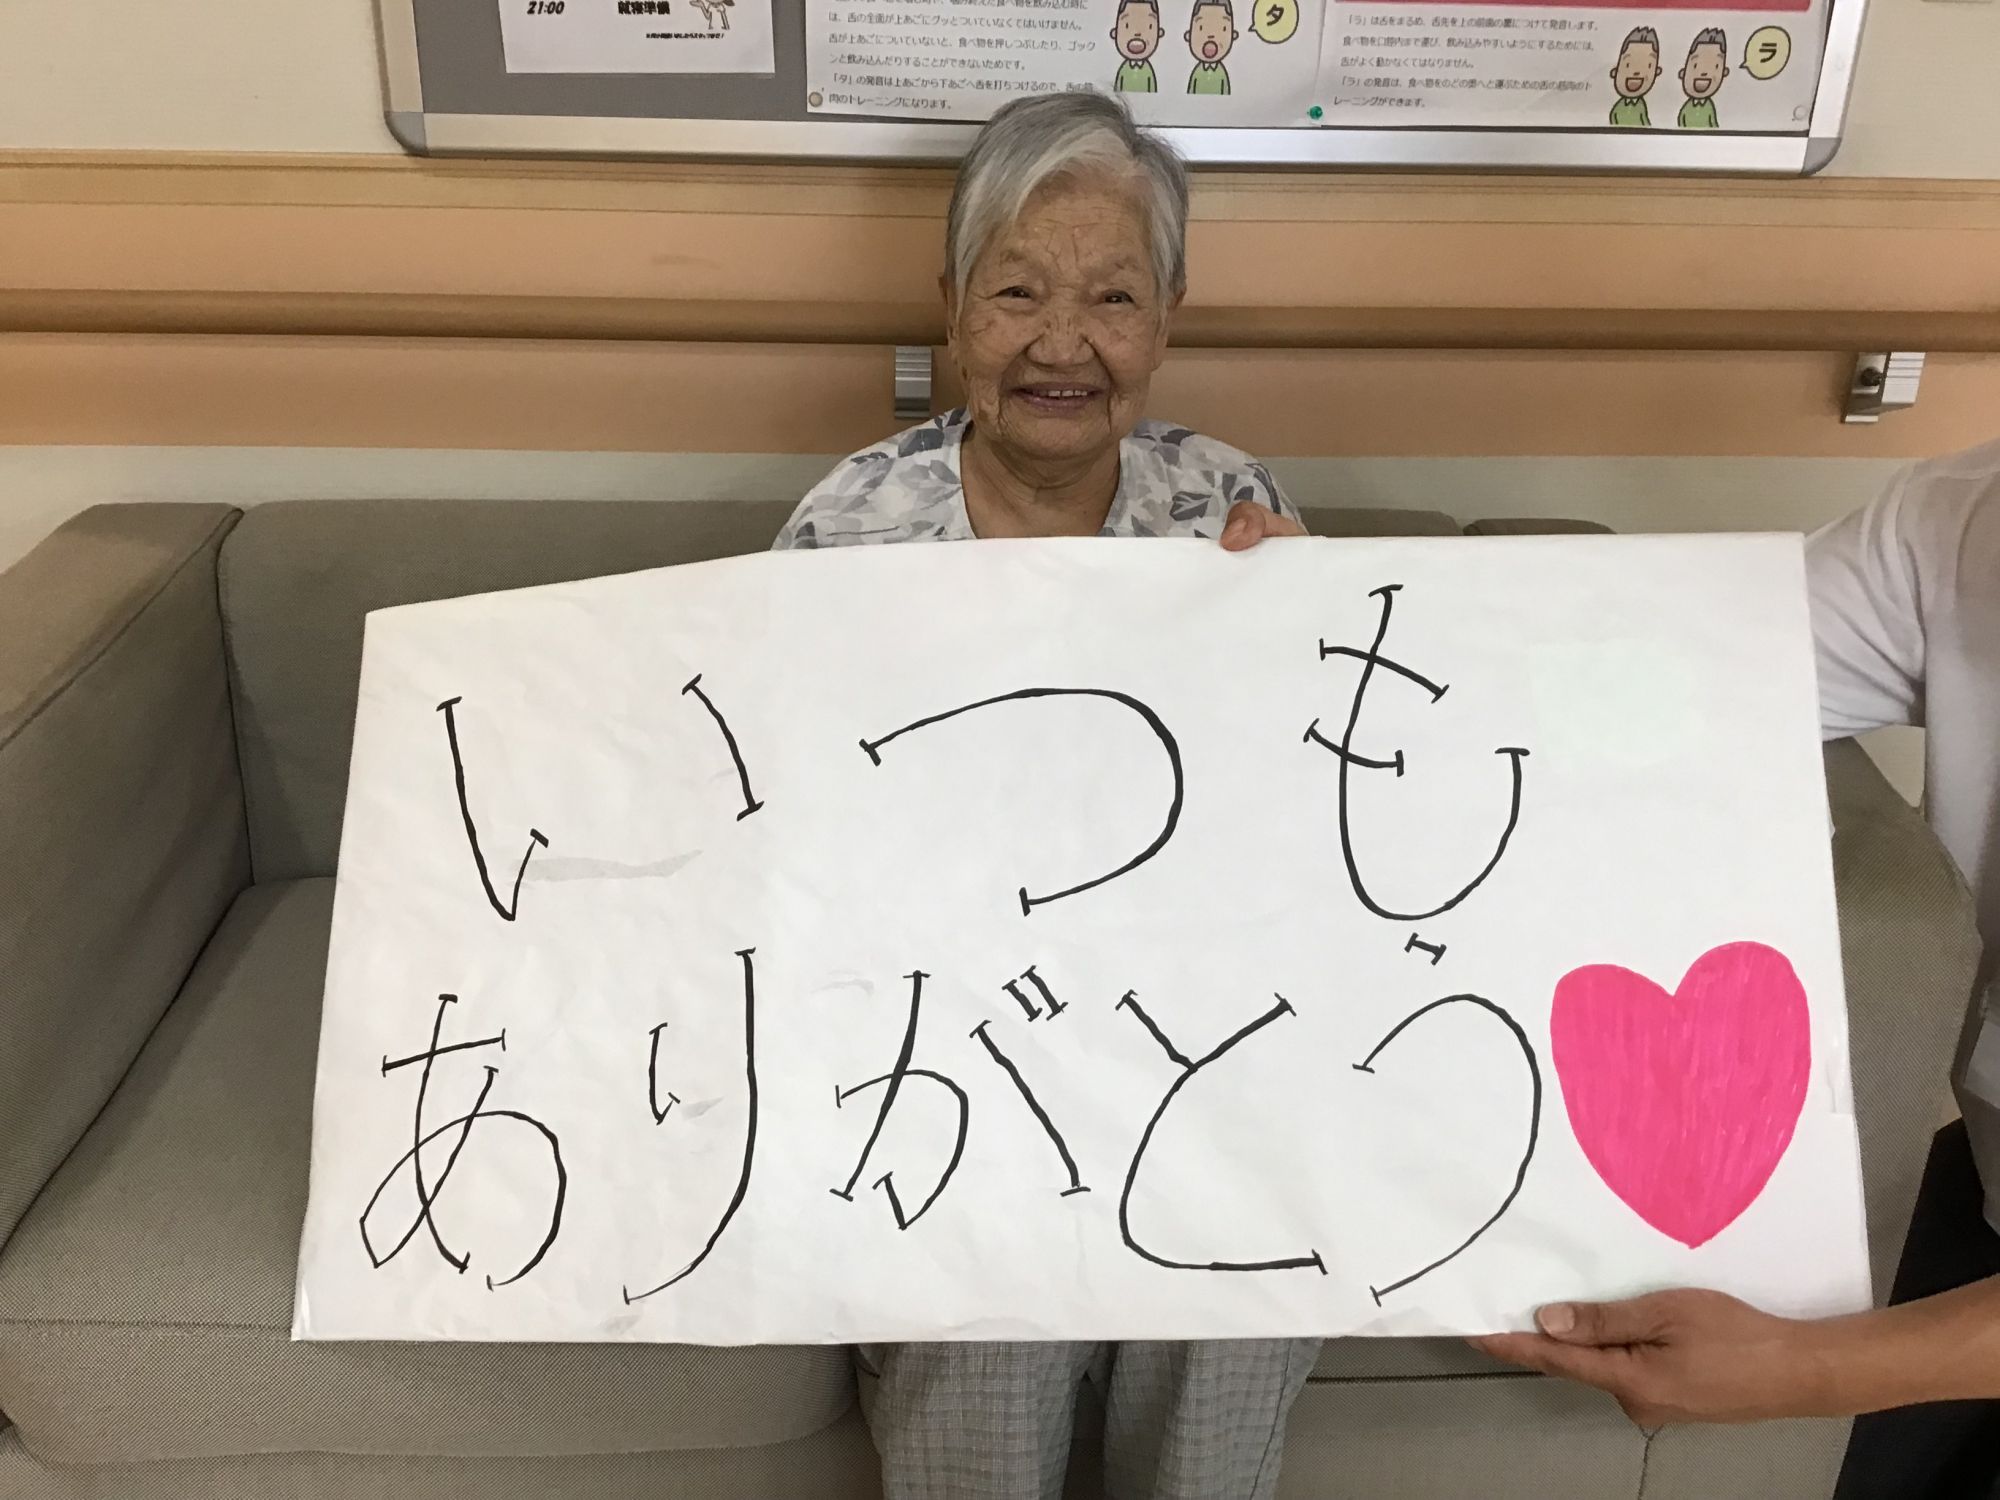 21:00 就寝準備
は、舌の全面が上あごにグッとついていなくてはいけません。
舌が上あごについていないと、食べ物を押しつぶしたり、ゴック
ンと飲み込んだりすることができないためです。
「タ」の発音は上あごから下あごへ舌を打ちつけるので、舌の筋
肉のトレーニングになります。
タ
「ラ」は舌をまるめ、舌先を上の前歯の裏につけて発音します。
食べ物を口腔内まで運び、飲み込みやすいようにするためには、
舌がよく動かなくてはなりません。
「ラ」の発音は、食べ物をのどの奥へと運ぶための舌の筋肉のト
レーニングができます。
ラ
いつも
ありがとう